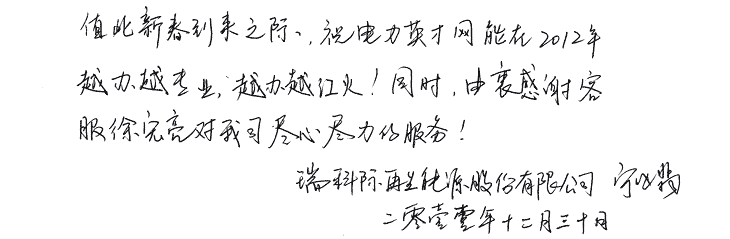 值此新春到来之际、,祝电力英才网能在2012年
越办越专业,越办越红火!同时,由衷感谢客
服徐完亮对我司尽心尽力的服务!
瑞科际再生能源股份有限公司 宁
二零壹壹年十二月三十日